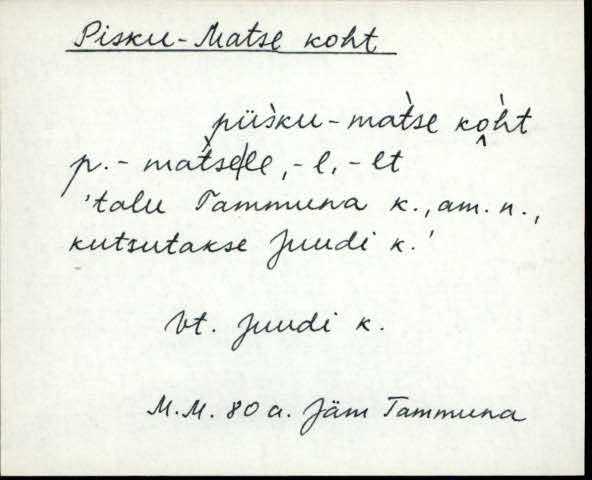 Pisku-Matse koht
piìsku-màtse kòht
p.-màtselle, -l, -lt
'talu Tammuna k., am. n.,
kutsutakse Juudi k.'
Vt. Juudi k.
M.M. 80 a. Jäm Tammuna